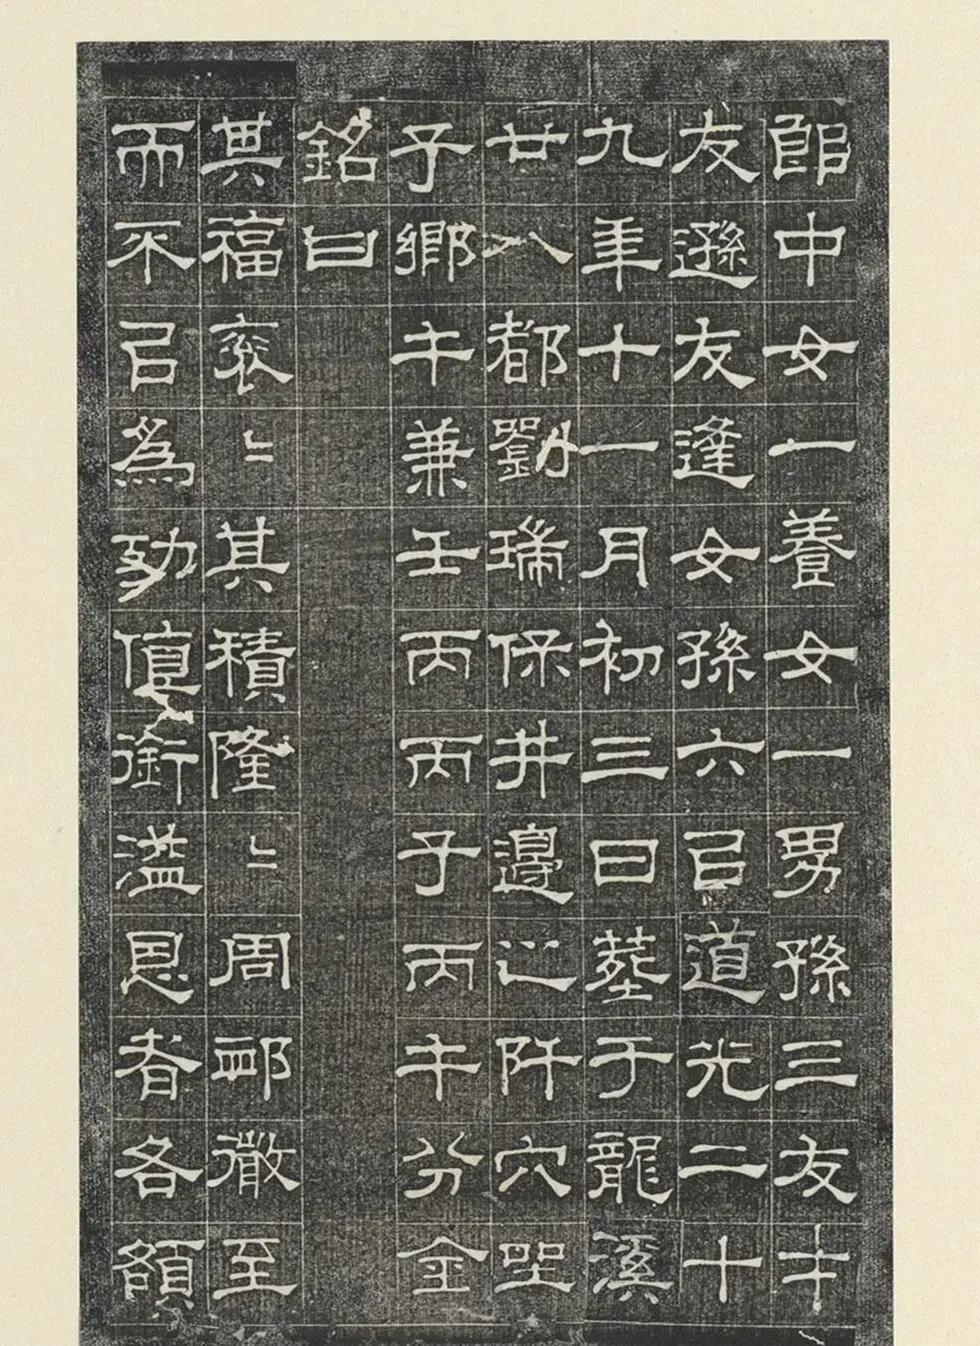 郎中女一養女一男孫三友才
友遜友逢女孫六㠯道光二十
九年十一月初三日葬于龍溪
廿八都劉瑞保井邊之阡穴坐
子鄉午兼壬丙丙子丙午分金
銘曰
其福衮〻其積隆〻周卹徵至
而不㠯為勞值銜溢恩者各額